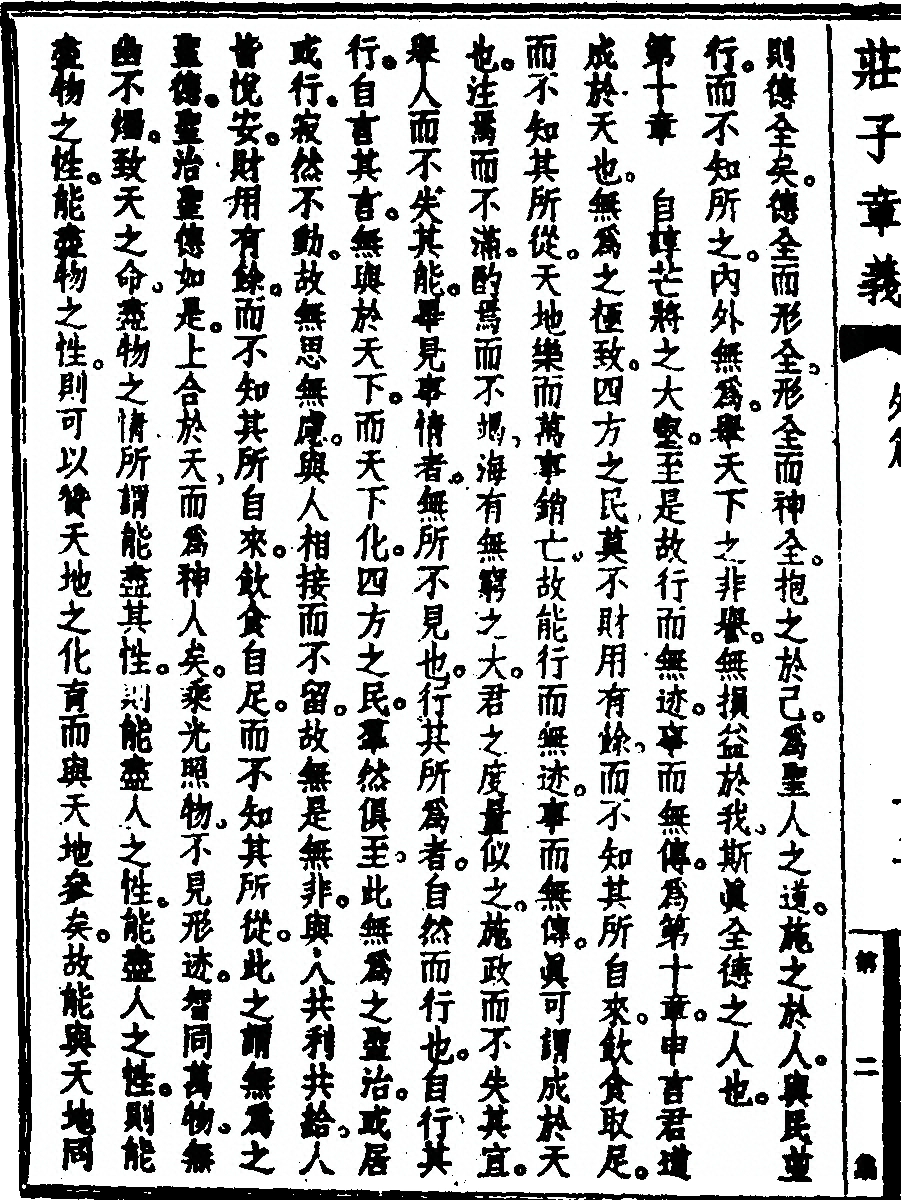 莊子章義
外篇
第二集
則德全矣。德全而形全、形全而神全。抱之於己。爲聖人之道。施之於人。與民並
行。而不知所之。內外無爲。舉天下之非譽。無損益於我、斯眞全德之人也。
第十章　自諄芒將之大壑。至是故行而無迹。事而無傳。爲第十章。申言君道
成於天也。無爲之極致。四方之民莫不財用有餘、而不知其所自來。飲食取足。
而不知其所從。天地樂而萬事銷亡。故能行而無迹。事而無傳。眞可謂成於天
也。注焉而不滿。酌焉而不竭、海有無窮之大。君之度量似之。施政而不失其宜。
舉人而不失其能。畢見事情者。無所不見也。行其所爲者。自然而行也。自行其
行。自言其言。無與於天下。而天下化。四方之民。羣然俱至、此無爲之聖治。或居
或行。寂然不動。故無思無慮。與人相接而不留。故無是無非。與人共利共給、人
皆悅安。財用有餘。而不知其所自來。飲食自足。而不知其所從。此之謂無爲之
聖德。聖治聖德如是。上合於天、而爲神人矣。乘光照物。不見形迹。智同萬物。無
幽不燭。致天之命、盡物之情所謂能盡其性。則能盡人之性。能盡人之性。則能
盡物之性。能盡物之性。則可以贊天地之化育而與天地參矣。故能與天地同